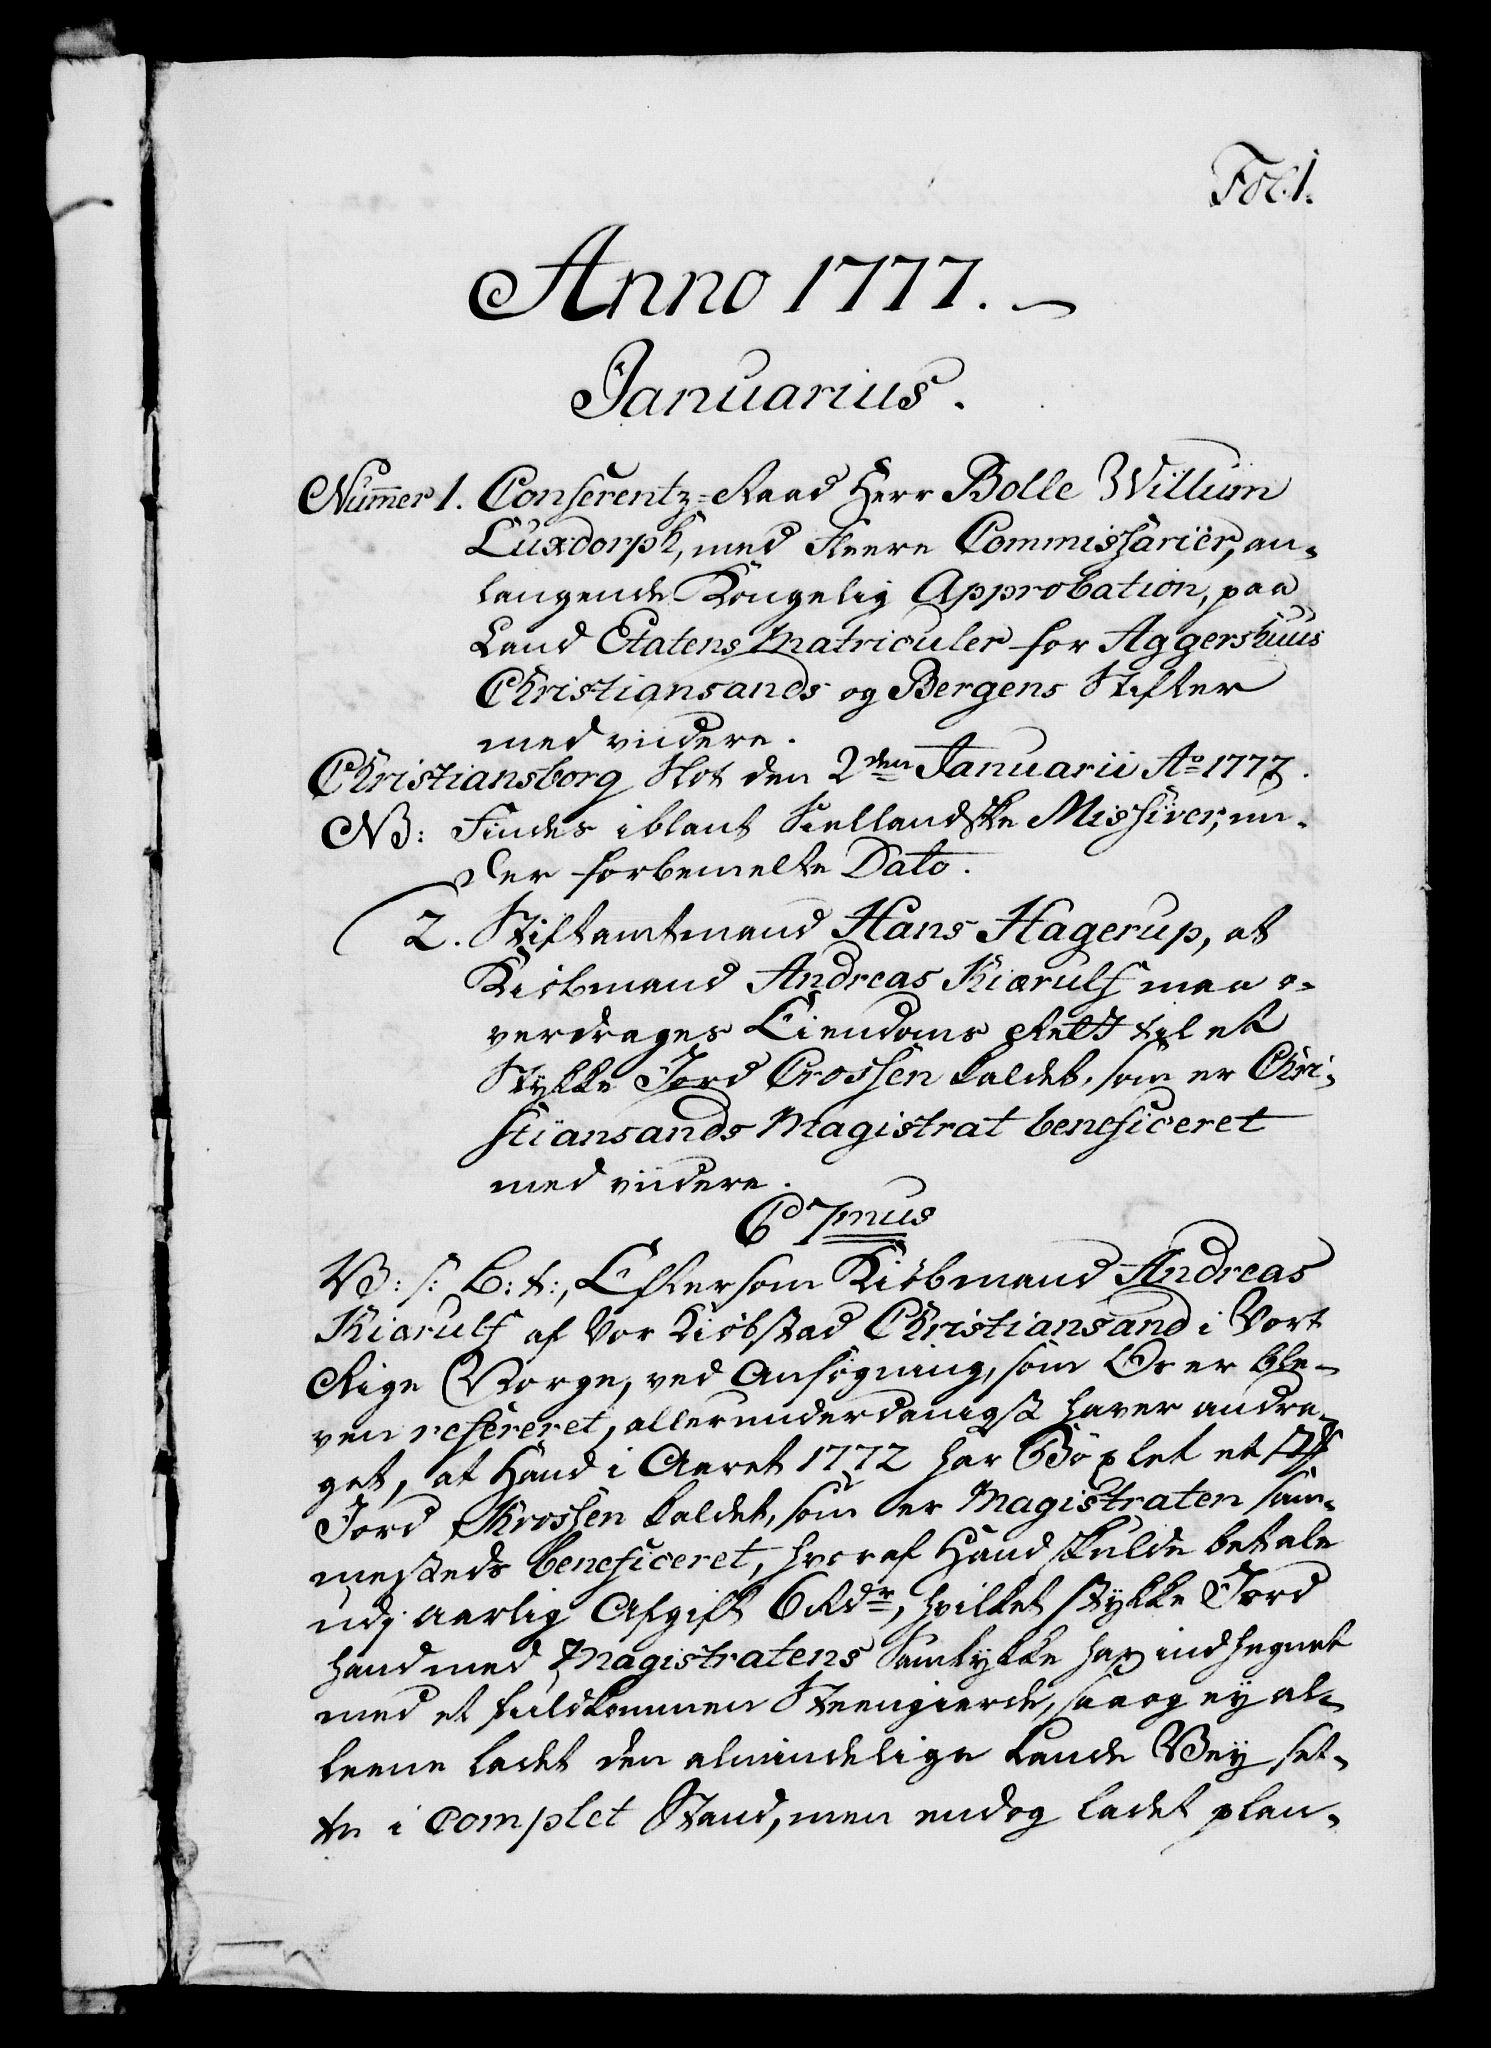 Fol. 1.
Anno 1777.
Januarius.
Nummer 1. Conferentz-Raad Herr Bolle Willum
Luxdorph, med fleere Commissarier, an-
langende Kongelig Approbation, paa
Land Etatens Matriculer for Aggershuus
Christiansands og Bergens Stifter
med viidere.
Christiansborg Slot den 2den Januarii Ao 1777.
NB: Findes iblant Siellandske Missiver, un-
der forbemelte Dato.
2. Stiftamtmand Hans Hagerup, at
Kiöbmand Andreas Kiærulf maa o-
verdrages Eiendoms Rett til et
Stykke Jord Crossen kaldet, som er Chri-
stiansands Magistrat beneficeret
med viidere.
C 7mus
V: s: G: t:, Eftersom Kiöbmand Andreas
Kiærulf af Vor Kiöbstad Christiansand i Vort
Rige Norge, ved Ansögning, som Os er ble-
ven refereret, allerunderdanigst haver andra-
get, at Hand i Aaret 1772 har Böxlet et
Jord Krossen kaldet, som er Magistraten sam-
mesteds beneficeret, hvoraf Hand skulde betale
udj aarlig Afgift 6 Rdr, hvilket Stykke Jord
hand med Magistratens Samtykke har indhegnet
med et fuldkommen Steengierde, saa og ey al-
leene ladet den almindelige Lande Vey sæt-
te i complet Stand, men endog ladet plan-